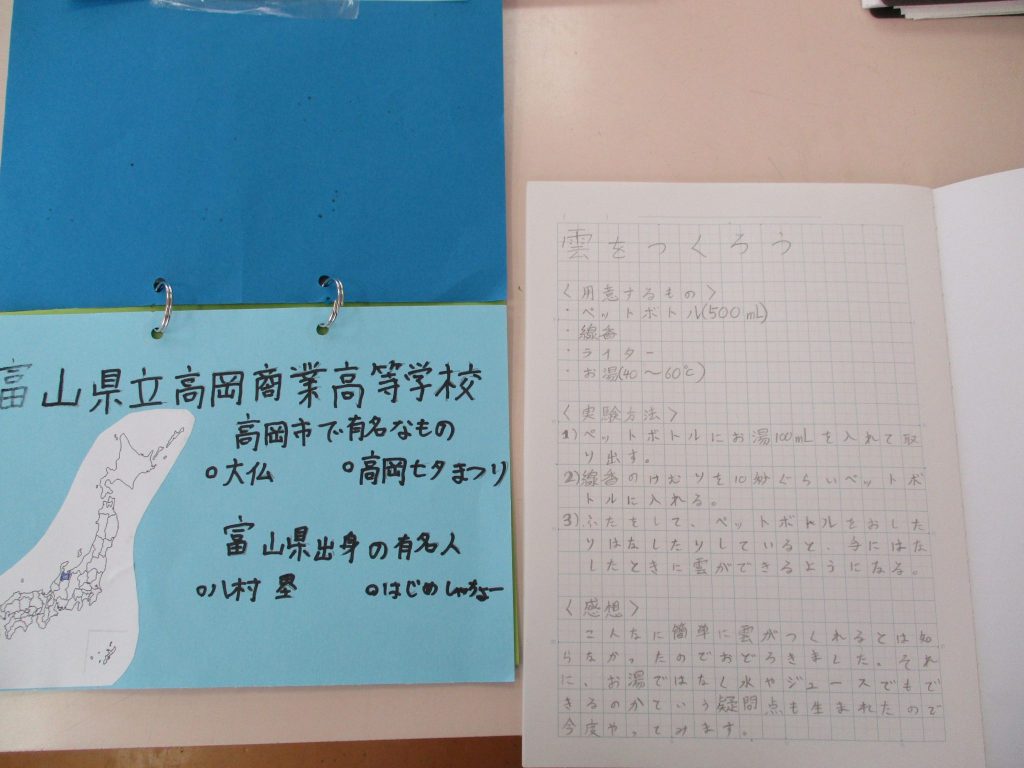 富山県立高岡商業高等学校
高岡市で有名なもの
○大仏 ○高岡七夕まつり
富山県出身の有名人
○八村塁 ○はじめしゃちょー
雲をつくろう
〈用意するもの〉
・ペットボトル(500mL)
・線香
・ライター
・お湯(40〜60℃)
〈実験方法〉
1)ペットボトルにお湯100mLを入れて取
り出す。
2)線香のけむりを10秒ぐらいペットボ
トルに入れる。
3)ふたをして、ペットボトルをおした
りはなしたりしていると、手にはな
したときに雲ができるようになる。
〈感想〉
こんなに簡単に雲がつくれるとは知
らなかったのでおどろきました。それ
に、お湯ではなく水やジュースでもで
きるのかという疑問点も生まれたので
今度やってみます。